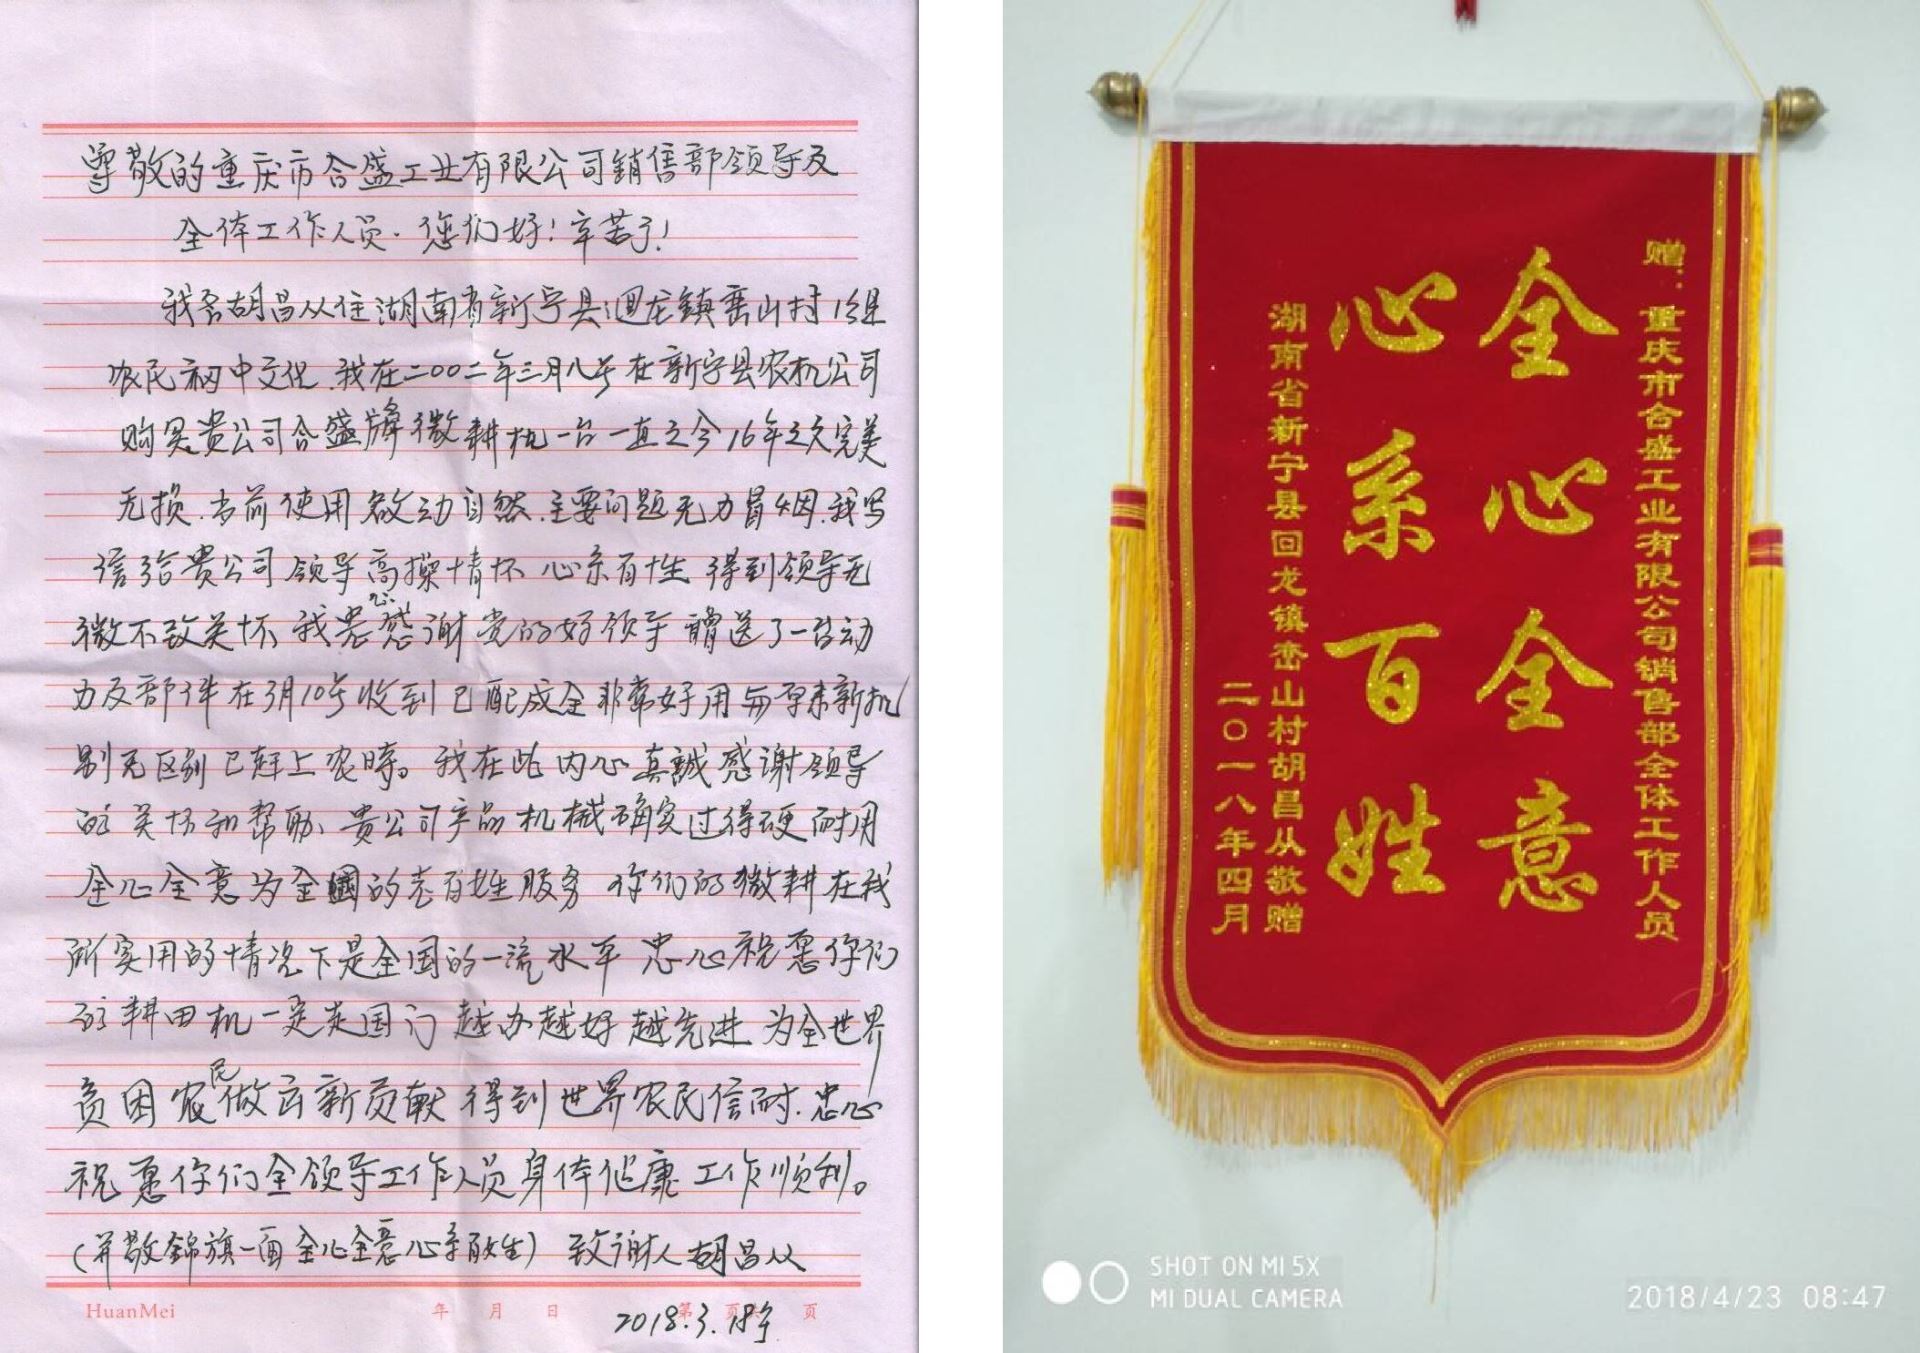 尊敬的重庆市合盛工业有限公司銷售部领导及
全体工作人员.您们好!辛苦了!
我名胡昌从住湖南省新宁县迴龙镇峦山村13组
农民初中文化.我在二00二年三月八号在新宁县农机公司
购买贵公司合盛牌微耕机一台一直之今16年之久完美
无损.当前使用啟动自然.主要问题无力冒烟.我写
信给贵公司领导高操情怀心系百姓得到领导无
微不致关怀.我忠心感谢党的好领导贈送了一台动
力及部件在3月10号收到已配成全非常好用与原来新机
别无区别已赶上农時。我在此内心真誠感谢领导
的关怀和帮助、贵公司产品机械确实过得硬耐用
全心全意为全國的老百姓服务你们的微耕在我
所实用的情况下是全国的一流水平忠心祝愿你们
的耕田机一定走国门越办越好越先进为全世界
贫困农民做出新贡献得到世界农民信耐.忠心
祝愿你们全领导工作人员身体健康工作顺利。
(并敬錦旗一面全心全意心系百姓)致谢人胡昌从
HuanMei 年 月 日 第 页 页
2018.3.
赠:重庆市合盛工业有限公司销售部全体工作人员
全心全意
心系百姓
湖南省新宁县回龙镇峦山村胡昌从敬赠
二〇一八年四月
SHOT ON MI 5X
MI DUAL CAMERA
2018/4/23 08:47